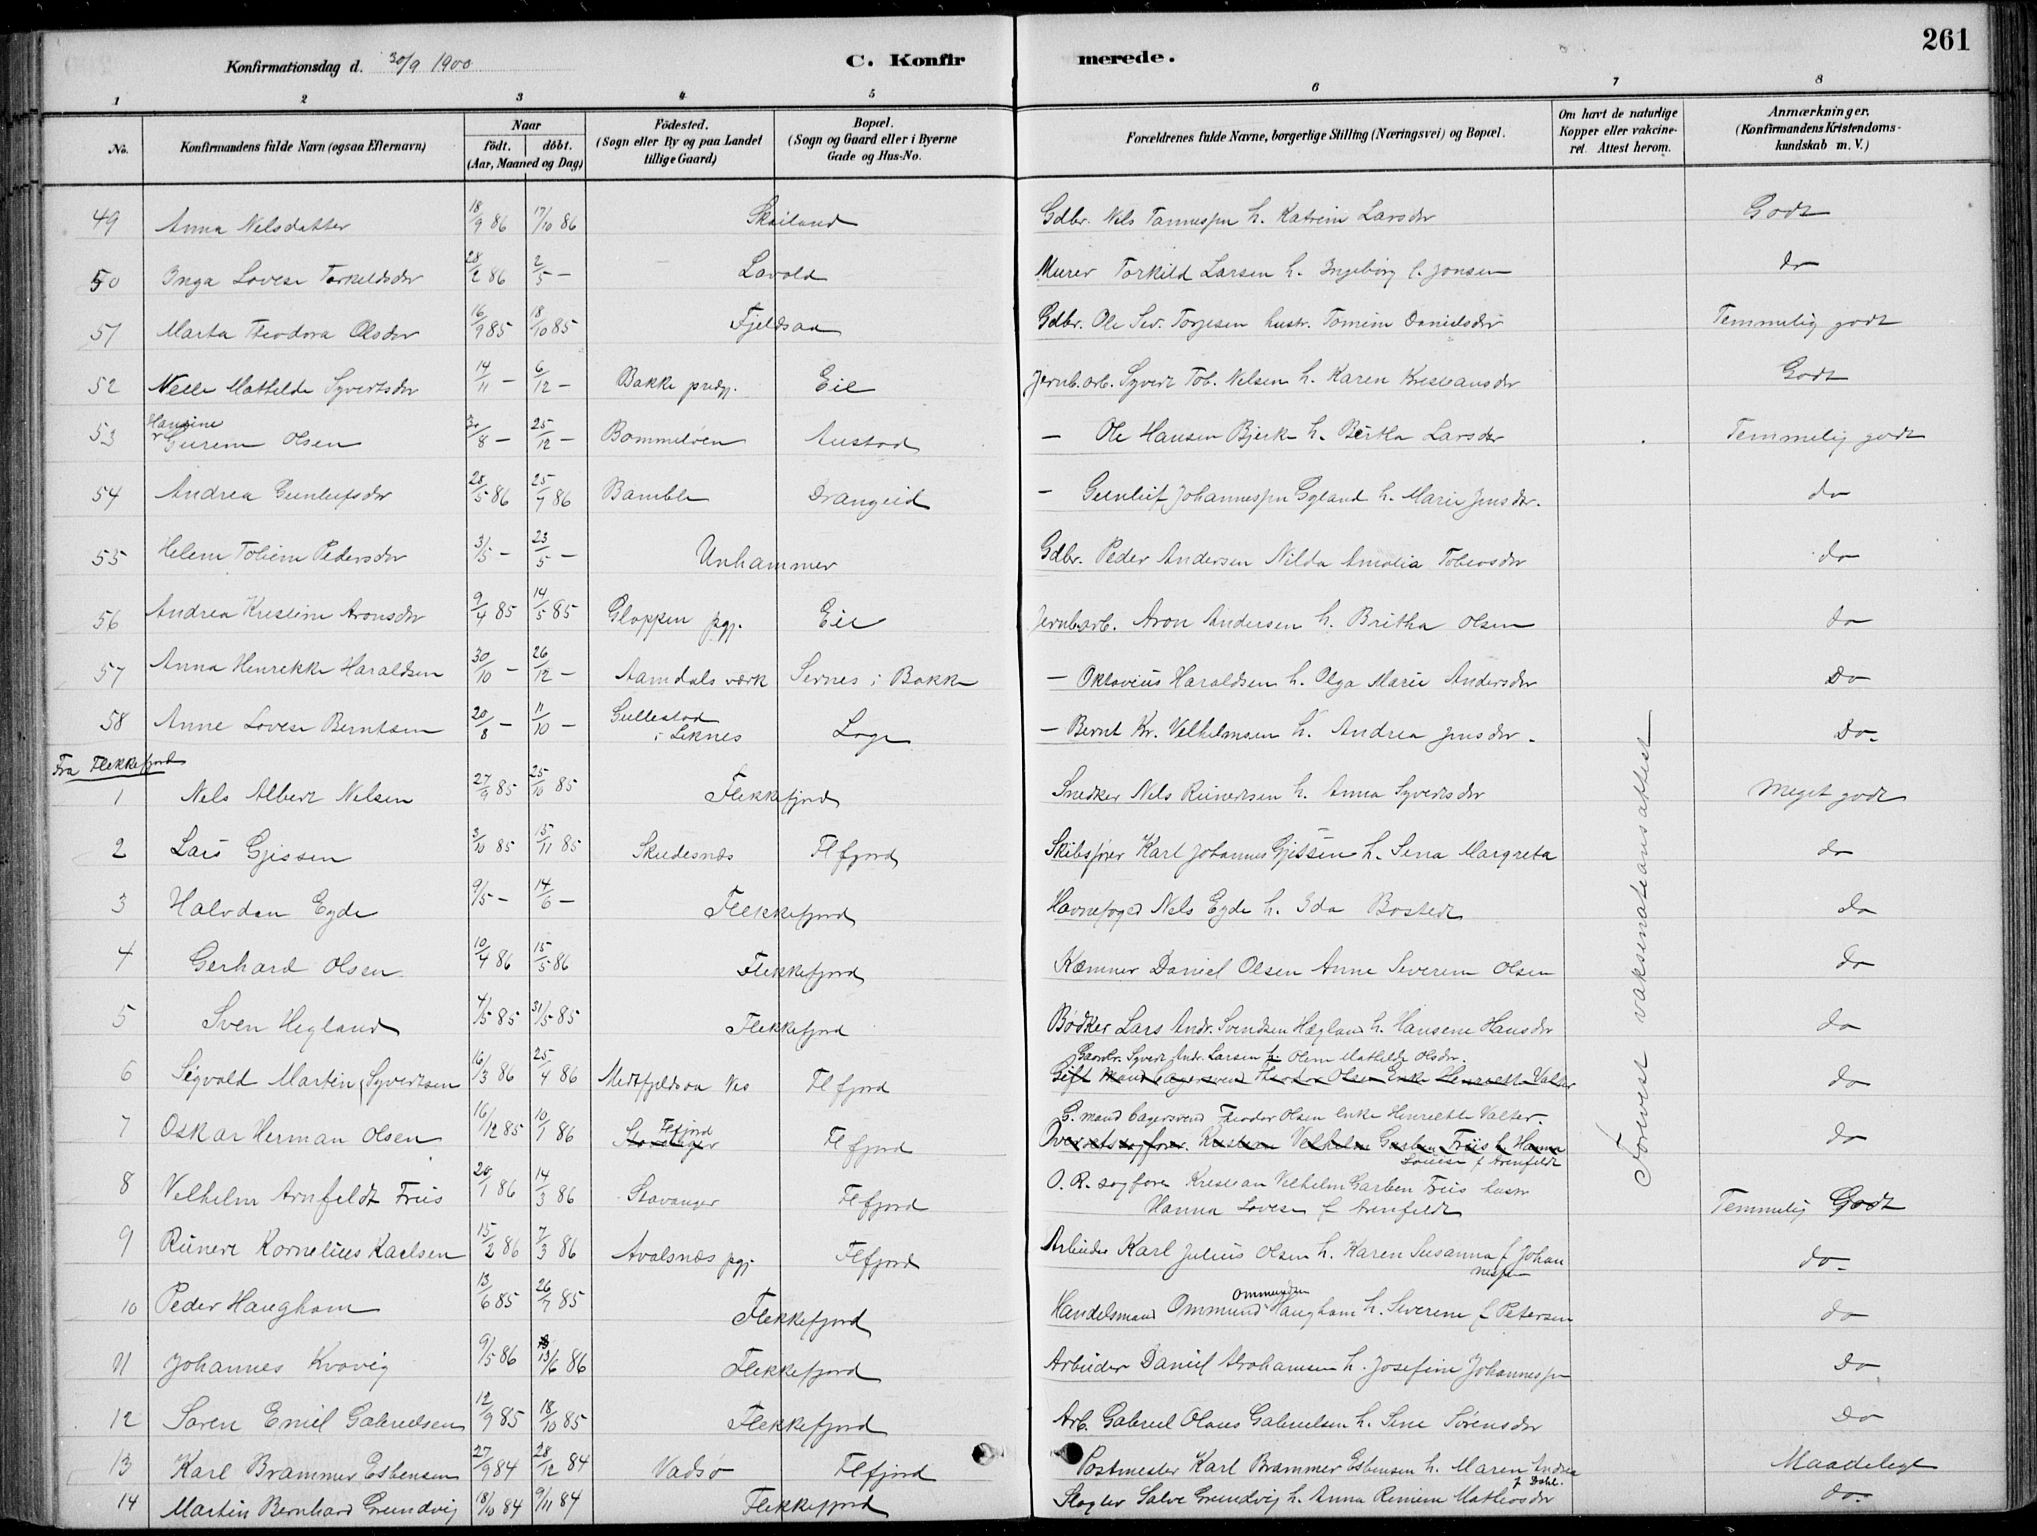 261
Konfirmationsdag d. 30/9 1900 C. Konfirmerede.
1 2 3 4 5 6 7 8
No. Konfirmandens fulde Navn (ogsaa Efternavn) Naar födt. döbt. (Aar, Maaned og Dag) Födested. (Sogn eller By og paa Landet tillige Gaard) Bopæl. (Sogn og Gaard eller i Byerne Gade og Hus-No. Forældrenes fulde Navne, borgerlige Stilling (Næringsvei) og Bopæl. Om havt de naturlige Kopper eller vakcineret. Attest herom. Anmærkninger. (Konfirmandens Kristendomskundskab m. V.)
49 Anna Nelsdatter 18/9 86 17/10 86 Skailand Gdbr. Nels Tannespn h. Katrine Larsdr Godt
50 Inga Lovese Torkeldsdr 28/2 86 2/5 — Lavold Murer Torkild Larsen h. Ingeborg f. Jonsen do
51 Marta Theodora Olsdr 16/9 85 18/10 85 Fjeldsaa Gdbr. Ole Sev. Torjesen hustr. Tomine Danielsdr Temmelig godt
52 Nelle Mathilde Syvertsdr 14/11 — 6/12 — Bakke prstgj. Eie Jernb.arb. Syvert Tob. Nelsen h. Karen Kresteansdr Godt
53 Hansine Gurine Olsen 30/8 — 25/12 — Bommeløen Austad — Ole Hansen Bjerke h. Bertha Larsdr Temmelig godt
54 Andrea Gunlufsdr 28/5 86 25/7 86 Bamble Drangeid — Gunluf Johannespn Gyland h. Marie Jensdr. do
55 Helene Tobine Pedersdr 3/5 — 23/5 — Unhammer Gdbr. Peder Andersen Nilda Amalia Tobiasdr do
56 Andrea Kristine Aronsdr 9/4 85 14/5 85 Gloppen pgj. Eie Jernb.arb. Aron Andersen h. Britha Olsen do
57 Anna Henrekke Haraldsen 30/10 — 26/12 — Aamdals værk Sirnes i Bakke — Oktavius Haraldsen h. Olga Marie Andersdr Do
58 Anne Lovese Berntsen 20/8 — 11/10 — Gullestad i Liknes Loge — Bernt Kr. Velhelmsen h. Andrea Jensdr. Do.
Fra Flekkefjord
1 Nels Albert Nelsen 27/9 85 25/10 85 Flekkefjord Snedker Nels Runertsen h. Anna Syvertsdr Meget godt
2 Lars Gjessen 3/10 85 15/11 85 Skudesnæs Flfjord Skibsfører Karl Johannes Gjessen h. Sena Margreta do
3 Halvdan Egde 9/5 — 14/6 — Flekkefjord Havnefoged Nels Egde h. Ida Bostedt do
4 Gerhard Olsen. 10/4 86 15/5 86 Flekkefjord Kæmner Daniel Olsen Anne Severine Olsen do
5 Sven Hegland 4/5 85 31/5 85 Flekkefjord Bødker Lars Andr. Svendsen Hægland h. Hansene Hansdr do
6 Segvald Martin Syvertsen 16/3 86 25/4 86 Medfjeldsaa Nes Flfjord Gaardbr. Syvert Andr. Larsen h. Oline Mathilde Olsdr. do
Gift Mand Lagersvend Theodor Olsen Enke Henriette Valter
7 Oskar Herman Olsen 16/12 85 10/1 86 Stavanger Flfjord Flfjord G. mand Lagersvend Theodor Olsen enke Henriette Valter. do
Overretssagfører. Kristian Velhelm Garben Friis h. Hanna Louise f Arenfeldt
8 Velhelm Arnfeldt Friis 20/1 86 14/3 86 Stavanger Flfjord O. R. sagfører Krestean Velhelm Garben Friis hustr Hanna Lovese f Arenfeldt Temmelig Godt
9 Runert Kornelius Karlsen 15/2 86 7/3 86 Avalsnæs pgj. Flfjord Arbeider Karl Julius Olsen h. Karen Susanna f Johannespn do.
10 Peder Haugham 13/6 85 26/7 85 Flekkefjord Handelsmand Ommund Ommundsen Haugham h. Severine f Petersen do
11 Johannes Kvavig 9/5 86 13/6 86 Flekkefjord Arbeider Daniel Abrahamsen h. Josefine Johannespn Do
12 Søren Emiel Gabrielsen 12/9 85 18/10 85 Flekkefjord Arb. Gabriel Olaus Gabrielsen h. Sine Sørensdr Do
13 Karl Brammer Esbensen 27/9 84 28/12 84 Vadsø Flfjord Postmester Karl Brammer Esbensen h. Maren Andrea f Dahl. Maadeligt
14 Martin Bernhard Grundvig 18/10 84 9/11 84 Flekkefjord Slagter Salve Grundvig h. Anna Remine Mathiasdr do.
Forevist vaksenateansattest